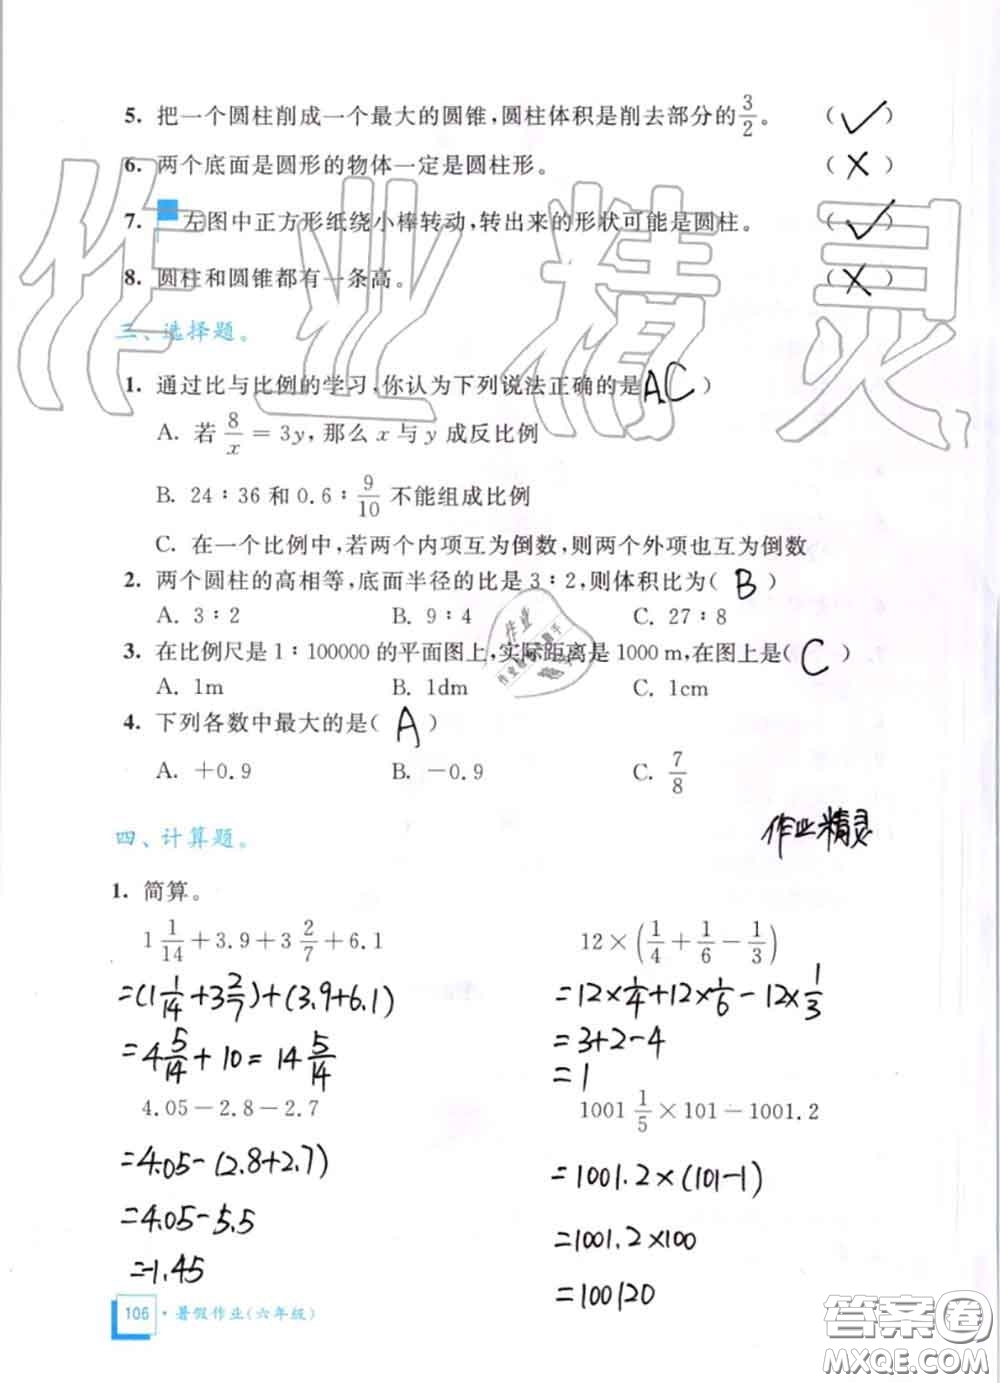 5. 把一个圆柱削成一个最大的圆锥,圆柱体积是削去部分的3/2。 (✓)
6. 两个底面是圆形的物体一定是圆柱形。 (×)
7. 左图中正方形纸绕小棒转动,转出来的形状可能是圆柱。 (✓)
8. 圆柱和圆锥都有一条高。 (×)
作业精灵
三、选择题。
1. 通过比与比例的学习,你认为下列说法正确的是 AC )
A. 若 8/x = 3y, 那么 x 与 y 成反比例
B. 24∶36 和 0.6∶9/10 不能组成比例
C. 在一个比例中,若两个内项互为倒数,则两个外项也互为倒数
2. 两个圆柱的高相等,底面半径的比是 3∶2,则体积比为( B )
A. 3∶2 B. 9∶4 C. 27∶8
3. 在比例尺是 1∶100000 的平面图上,实际距离是 1000 m,在图上是( C )
A. 1m B. 1dm C. 1cm
4. 下列各数中最大的是( A )
A. +0.9 B. −0.9 C. 7/8
四、计算题。
作业精灵
1. 简算。
1 1/14 + 3.9 + 3 2/7 + 6.1
=(1 1/14 + 3 2/7) + (3.9+6.1)
= 4 5/14 + 10 = 14 5/14
4.05−2.8−2.7
=4.05−(2.8+2.7)
=4.05−5.5
=−1.45
12×(1/4 + 1/6 − 1/3)
=12×1/4+12×1/6−12×1/3
=3+2−4
=1
1001 1/5 ×101−1001.2
=1001.2×(101−1)
=1001.2×100
=100120
106 · 暑假作业(六年级)
答案圈
MXQE.COM